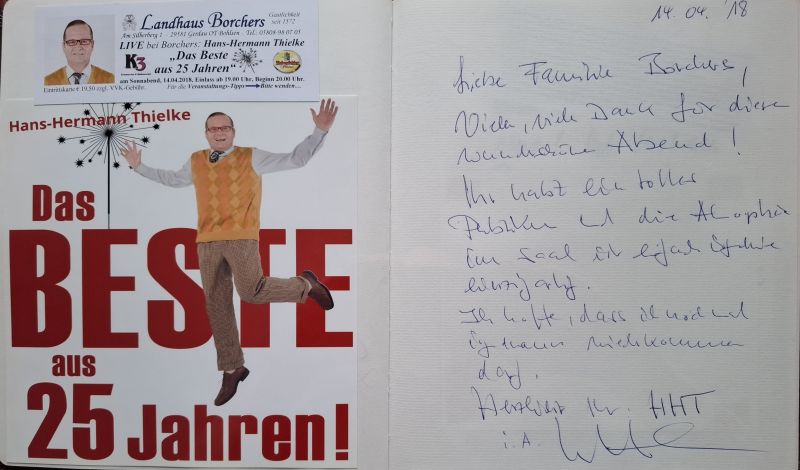 Landhaus Borchers
Gastlichkeit
seit 1572
Am Silberberg 1 - 29581 Gerdau OT Bohlsen - Tel.: 05808-98 07 05
LIVE bei Borchers: Hans-Hermann Thielke
K3
„Das Beste
aus 25 Jahren“
am Sonnabend, 14.04.2018, Einlass ab 19.00 Uhr, Beginn 20.00 Uhr.
Eintrittskarte € 19,50 zzgl. VVK-Gebühr.
Für die Veranstaltungs-Tipps Bitte wenden…
Hans-Hermann Thielke
Das
BESTE
aus
25 Jahren!
14.04.'18
Liebe Familie Borchers,
Vielen, viele Dank für diesen
wunderschönen Abend!
Ihr habt ein tolles
Publikum und die Atmosphäre
im Saal ist einfach
einzigartig.
Ich hoffe, dass ich noch mal
irgendwann wiederkommen
darf.
Herzlichst Ihr HHT
i.A.